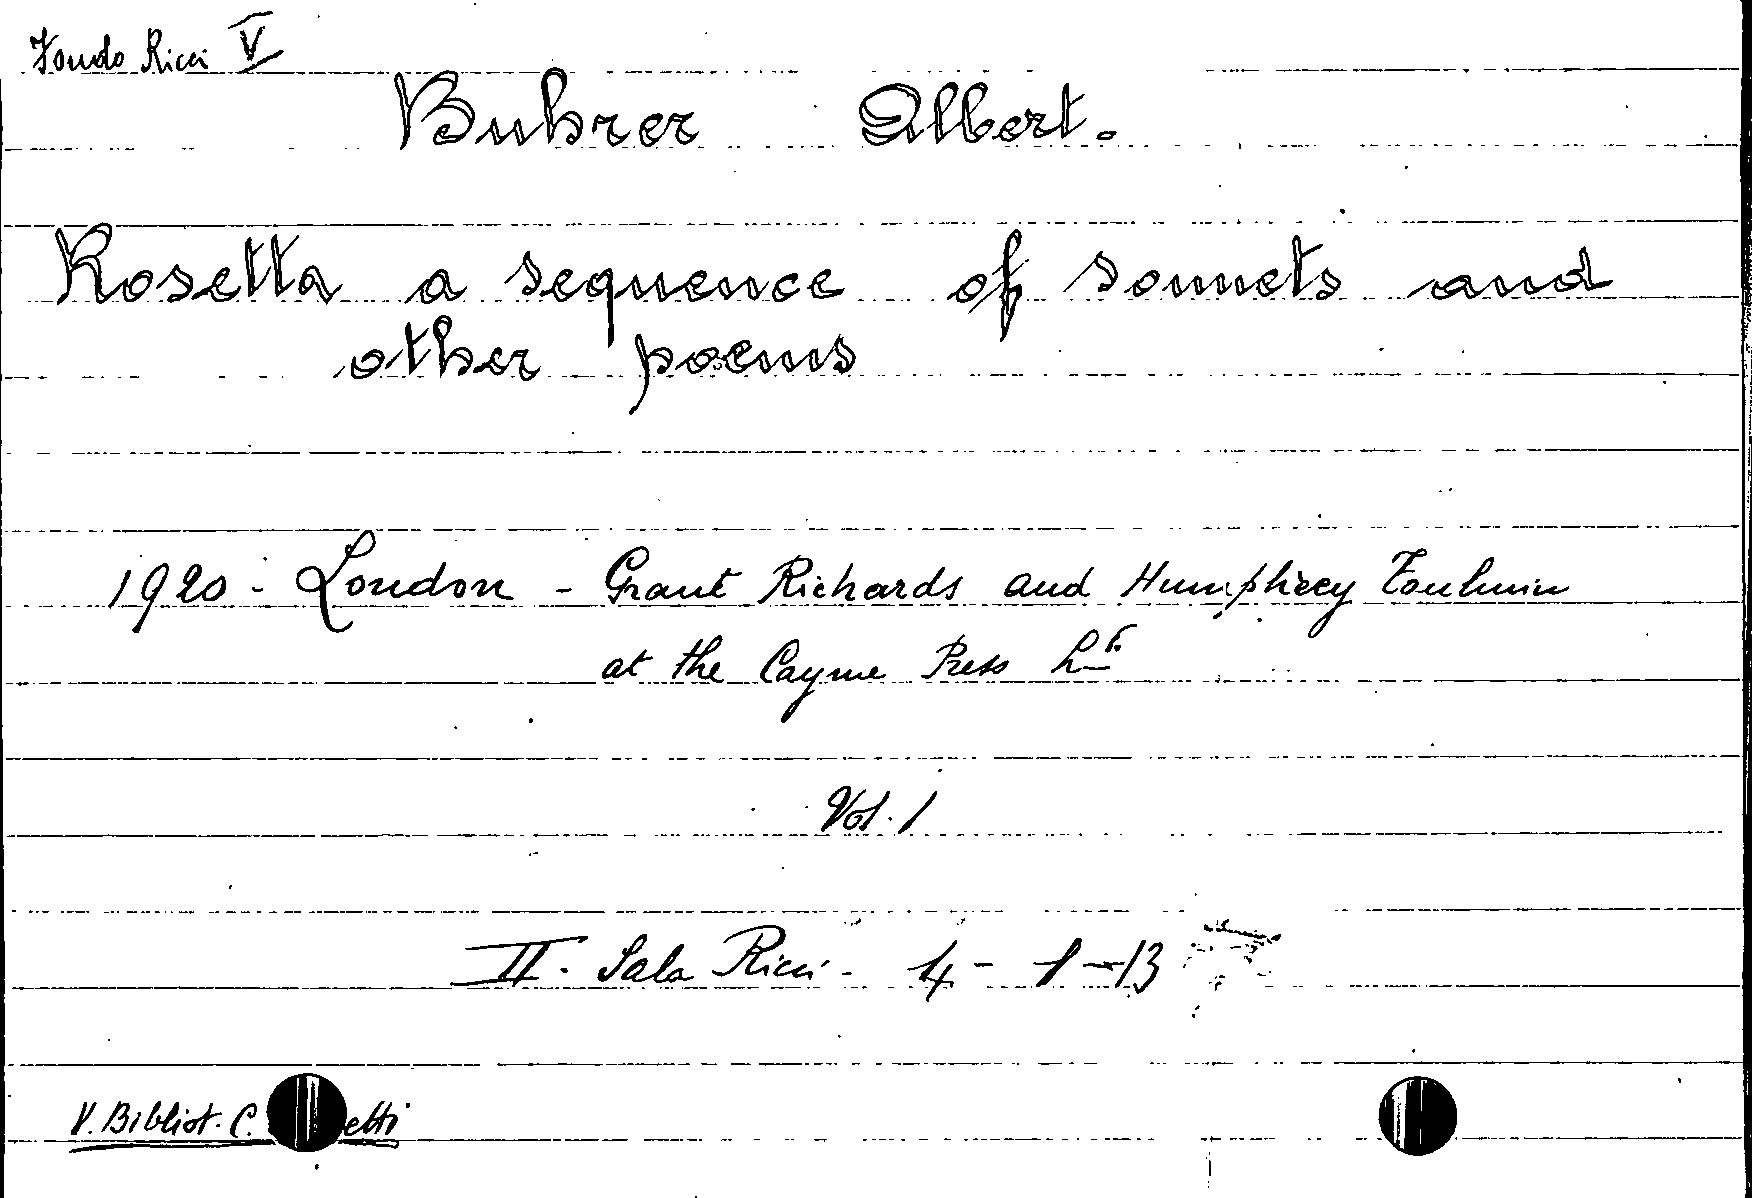 Fondo Ricci V
Buhrer Albert.
Rosetta a sequence of sonnets and
other poems
1920 - London - Grant Richards and Humphrey Toulmin
at the Cayme Press Lt
Vol. 1
II. Sala Ricci - 4 - 1 - 13
V. Bibliot. C.